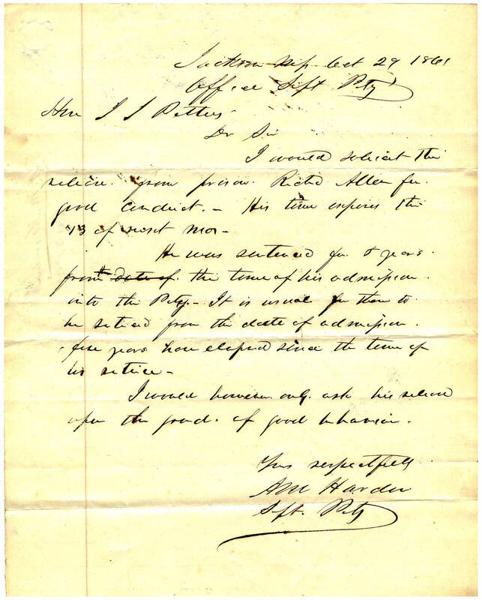 Jackson Mp. Oct 29 1861
Office Supt Pty
Hon J J Pettus
Dr Sir
I would solicit the
release from prison Richd Allen for
good conduct. - His time expires the
of next mos -
He was sentenced for 5 years
from the time of his admission
into the Pety. - It is usual for them to
be from the date of admission.
five years have elapsed since the time of
his -
I would however only ask his release
upon the of good behavior.
Yrs respectfully
A M Hardin
Supt. Pety